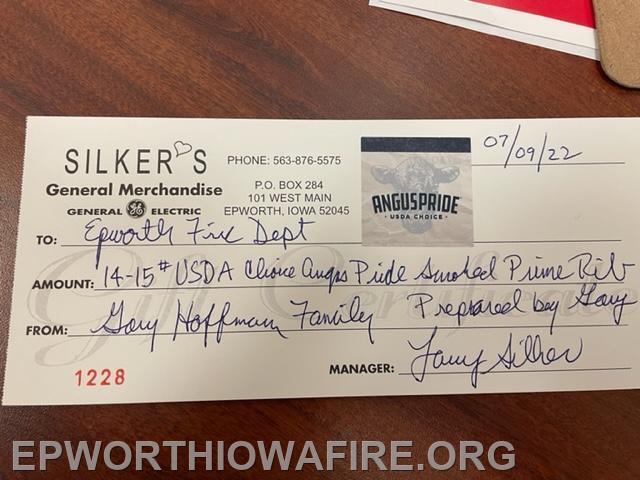 SILKER'S
General Merchandise
GENERAL GE ELECTRIC
PHONE: 563-876-5575
P.O. BOX 284
101 WEST MAIN
EPWORTH, IOWA 52045
ANGUSPRIDE
• USDA CHOICE •
07/09/22
Gift Certificate
TO: Epworth Fire Dept
AMOUNT: 14-15# USDA Choice Angus Pride Smoked Prime Rib
FROM: Gary Hoffman Family Prepared by Gary
1228
MANAGER: Silker
EPWORTHIOWAFIRE.ORG